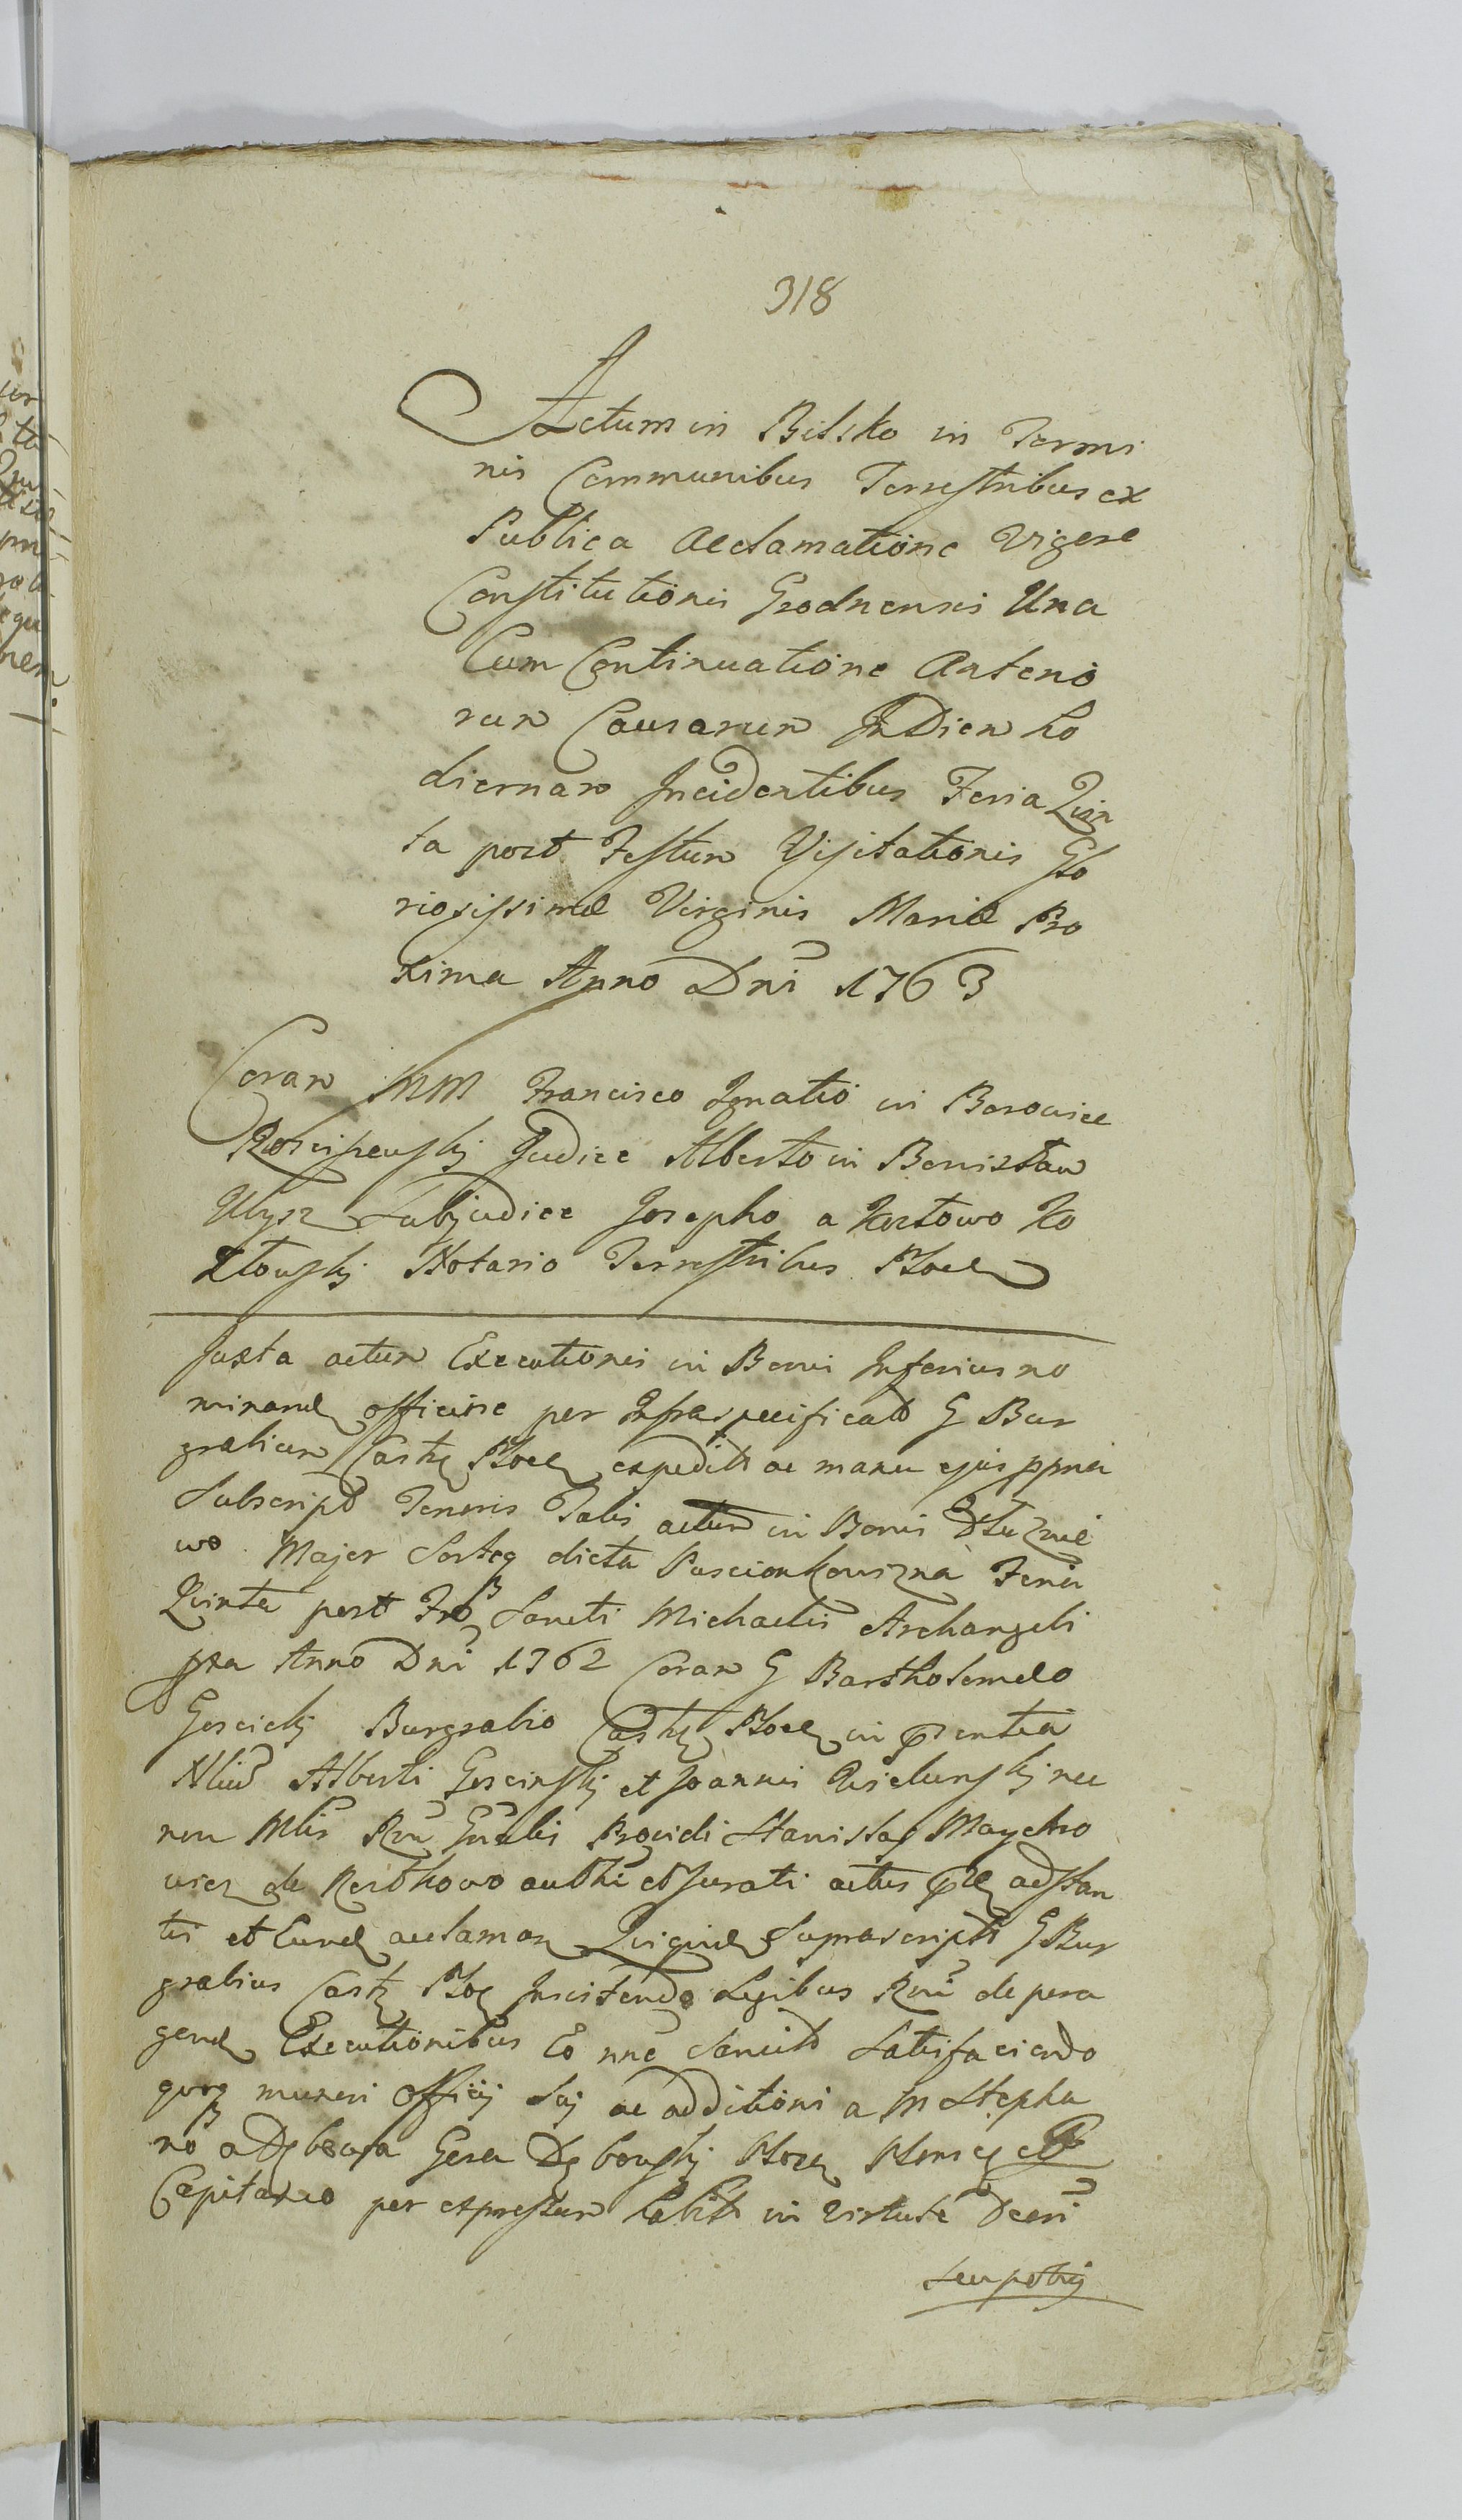 318
Actum in Bilsko in Termi
nis Communibus Terrestribus ex
Publica Acclamatione Vigore
Constitutionis Grodnensis Una
Cum Continuatione Anterio
rum Causarum In Diem ho
diernam Incidentibus Feria Quin
ta post Festum Visitationis Glo
riosissimæ Virginis Mariæ Pro
xima Anno Dni 1763
Coram MM Francisco Ignatio in Borowice
Rosciszewskj Judice Alberto in Bonisław
Ubysz Subjudice Josepho a Kozłowo Ko
złowskj Notario Terrestribus Płocen
Juxta actum Executionis in Bonis Inferius no
minand officiose per Infraspecificatum G Bur
grabium Castr Plocen expedit ac manu ejus ppria
Subscript Tenoris Talis actum in Bonis
wo Major Sorteq dicta Pascionkowizna Feria
Quinta post Fes Sancti Michaelis Archangeli
pxa Anno Dni 1762 Coram G Bartholomeo
Goscickj Burgrabio Castr Plocen in pntia
Nlium Alberti Goscinskj et Joannis Wielunskj nec
non Mlis Rni Gnalis Providi Stanislai Maycho
wicz de authci et Jurati actus adstan
tis et acclaman Quiquid Suprascript G Bur
grabius Castr Ploc Insistendo Legibus Rni de pera
gend Executionibus Eo nne Sancit Satisfaciendo
quoq muneri Officij Sui ac additioni a M Stepha
no a Dębowa Gora Dębowskj Plocen
Capitaneo per expressum habit in Virtute Decri
seu potius